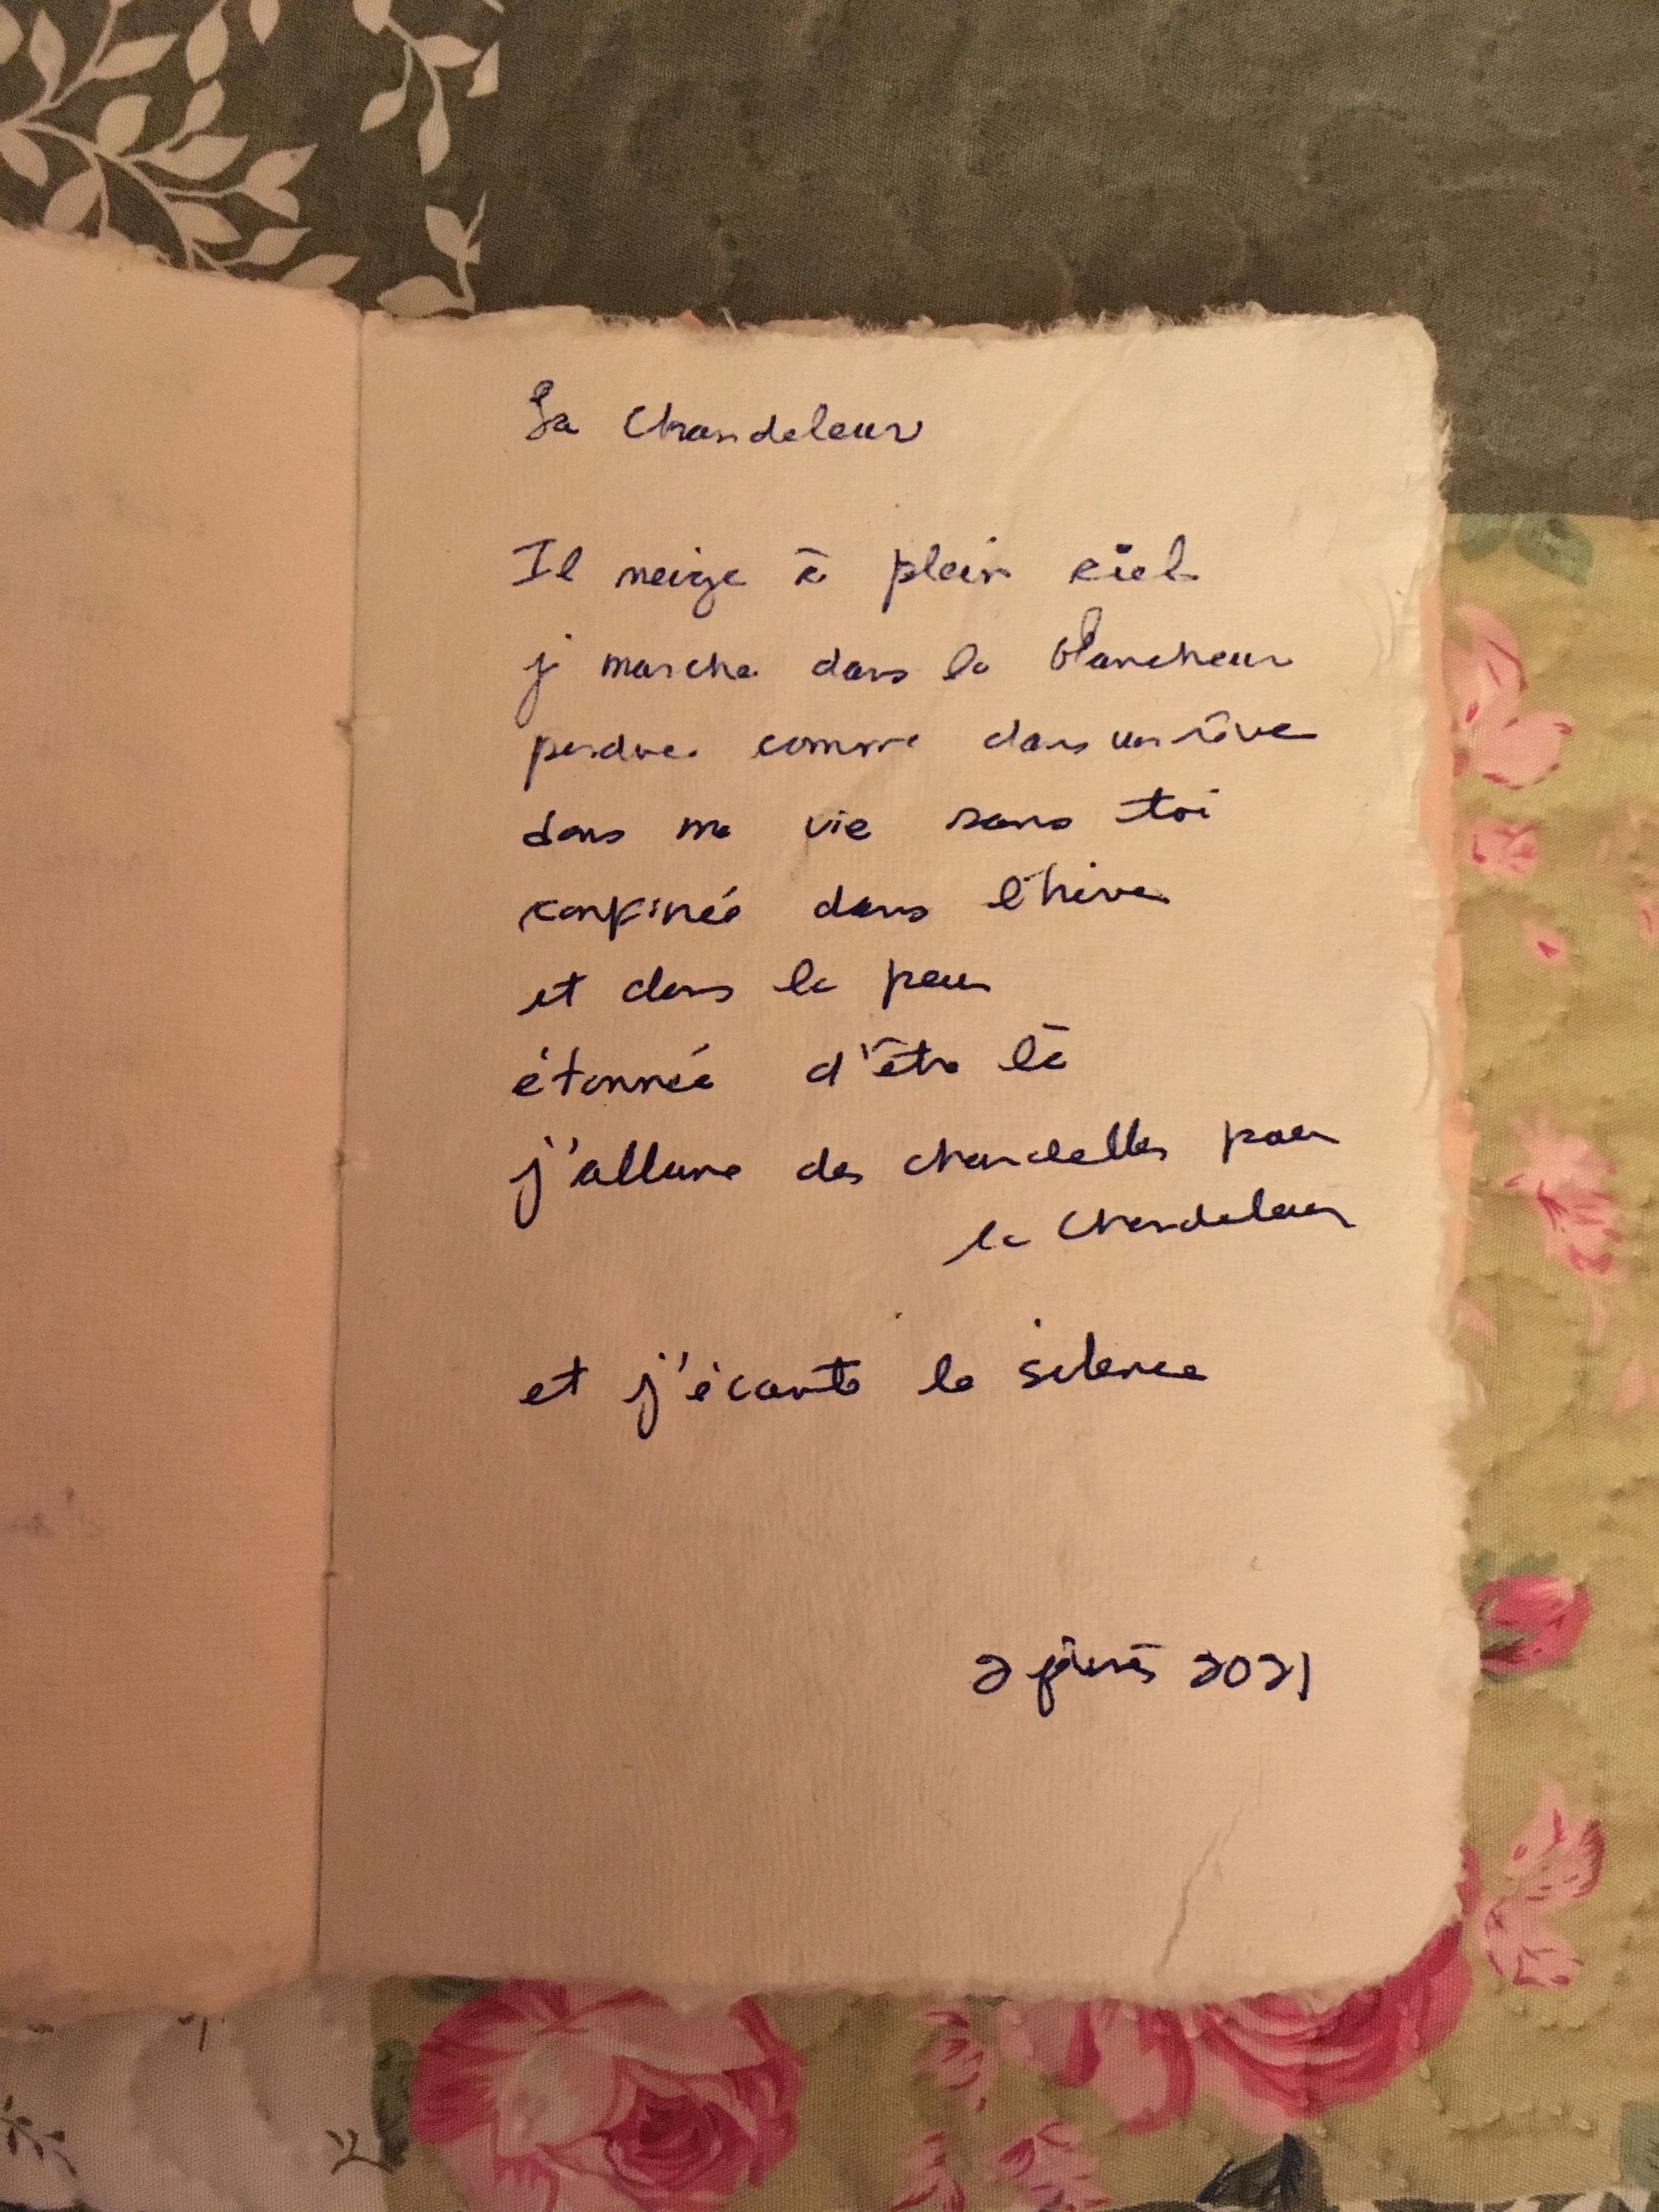 La Chandeleur
Il neige à plein ciel
je marche dans la blancheur
perdue comme dans un rêve
dans ma vie sans toi
confinée dans l'hiver
et dans la peur
étonnée d'être là
j'allume des chandelles pour
la Chandeleur
et j'écoute le silence
2 2021